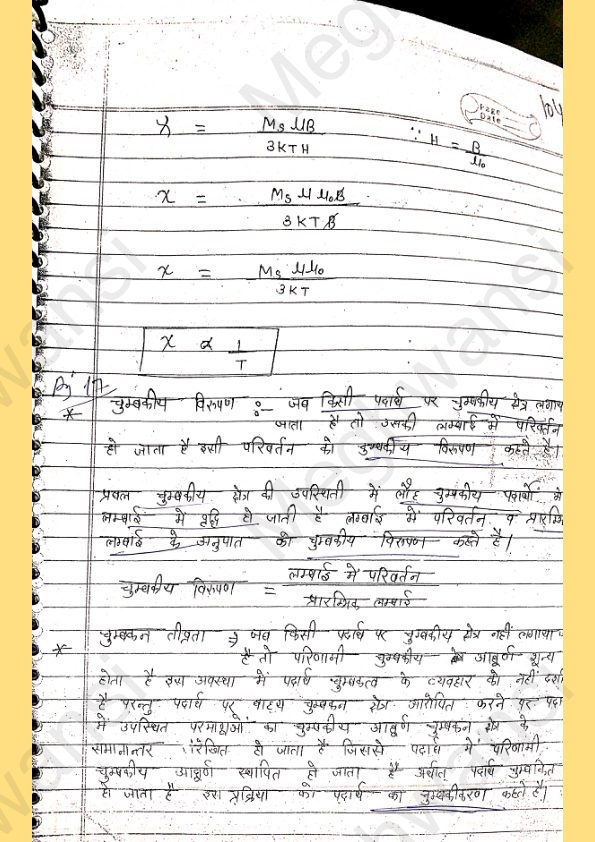 Page
Date
104
χ = Ms μB / 3KTH ∵ H = B / μ₀
χ = Ms μ μ₀B / 3KTB
χ = Ms μμ₀ / 3KT
χ ∝ 1 / T
* चुम्बकीय विरूपण :- जब किसी पदार्थ पर चुम्बकीय क्षेत्र लगाया
जाता है तो उसकी लम्बाई में परिवर्तन
हो जाता है इसी परिवर्तन को चुम्बकीय विरूपण कहते है।
प्रबल चुम्बकीय क्षेत्र की उपस्थिती में लौह चुम्बकीय पदार्थो
लम्बाई में वृद्धि हो जाती है लम्बाई में परिवर्तन व प्रारम्भि
लम्बाई के अनुपात को चुम्बकीय विरूपण कहते है।
चुम्बकीय विरूपण = लम्बाई में परिवर्तन / प्रारम्भिक लम्बाई
* चुम्बकन तीव्रता ⇒ जब किसी पदार्थ पर चुम्बकीय क्षेत्र नहीं लगाया
है तो परिणामी चुम्बकीय आघूर्ण शून्य
होता है इस अवस्था में पदार्थ चुम्बकत्व के व्यवहार को नहीं दर्शा
है परन्तु पदार्थ पर बाह्य चुम्बकन क्षेत्र आरोपित करने पर पदा
में उपस्थित परमाणुओं का चुम्बकीय आघूर्ण चुम्बकन क्षेत्र के
समानान्तर संरेखित हो जाता है जिससे पदार्थ में परिणामी
चुम्बकीय आघूर्ण स्थापित हो जाता है अर्थात् पदार्थ चुम्बकित
हो जाता है इस प्रक्रिया को पदार्थ का चुम्बकीकरण कहते है।
Meghwansi